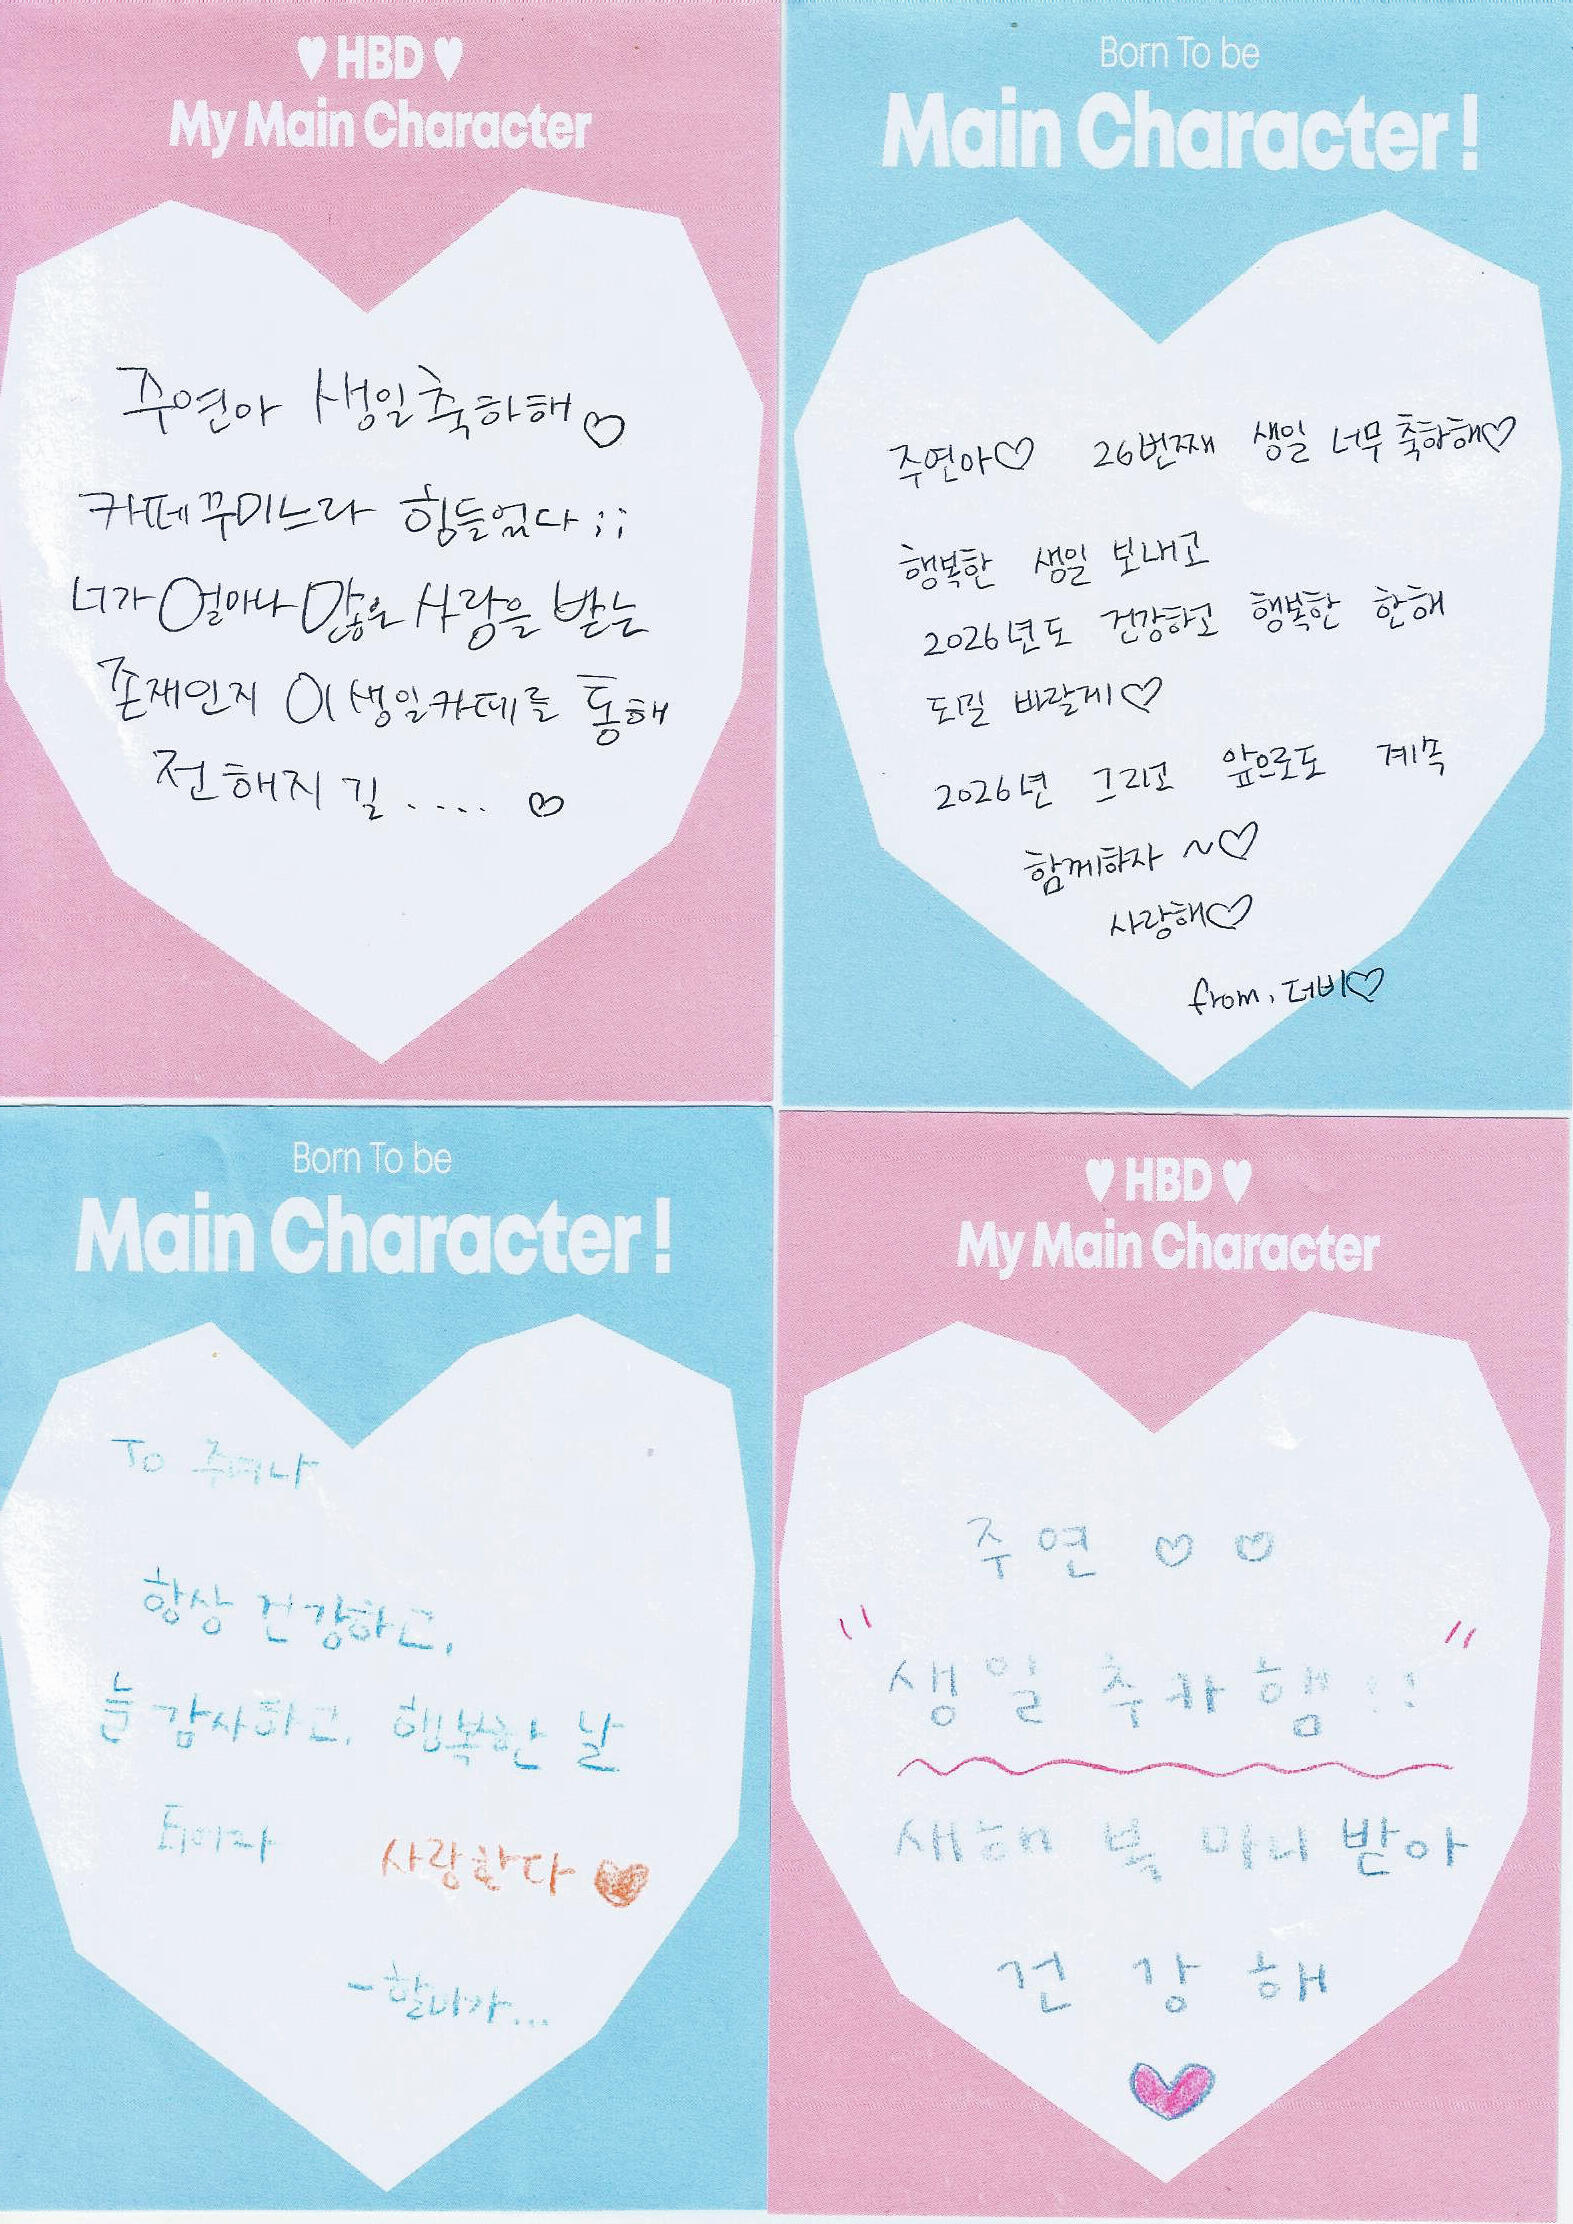 ♥ HBD ♥
My Main Character
주연아 생일축하해♡
카페꾸미느라 힘들었다;;
너가 얼마나 많은 사랑을 받는
존재인지 이 생일카페를 통해
전해지길.... ♡
Born To be
Main Character!
주연아♡ 26번째 생일 너무 축하해♡
행복한 생일 보내고
2026년도 건강하고 행복한 한해
되길 바랄게♡
2026년 그리고 앞으로도 계속
함께하자 ~♡
사랑해♡
from. 더비♡
Born To be
Main Character!
To 주여나
항상 건강하고,
늘 감사하고, 행복한 날
되어라 사랑한다 ♥
-할미가...
♥ HBD ♥
My Main Character
주연 ♡ ♡
"생일 추카햄!!"
새해 복 마니 받아
건강해
♥